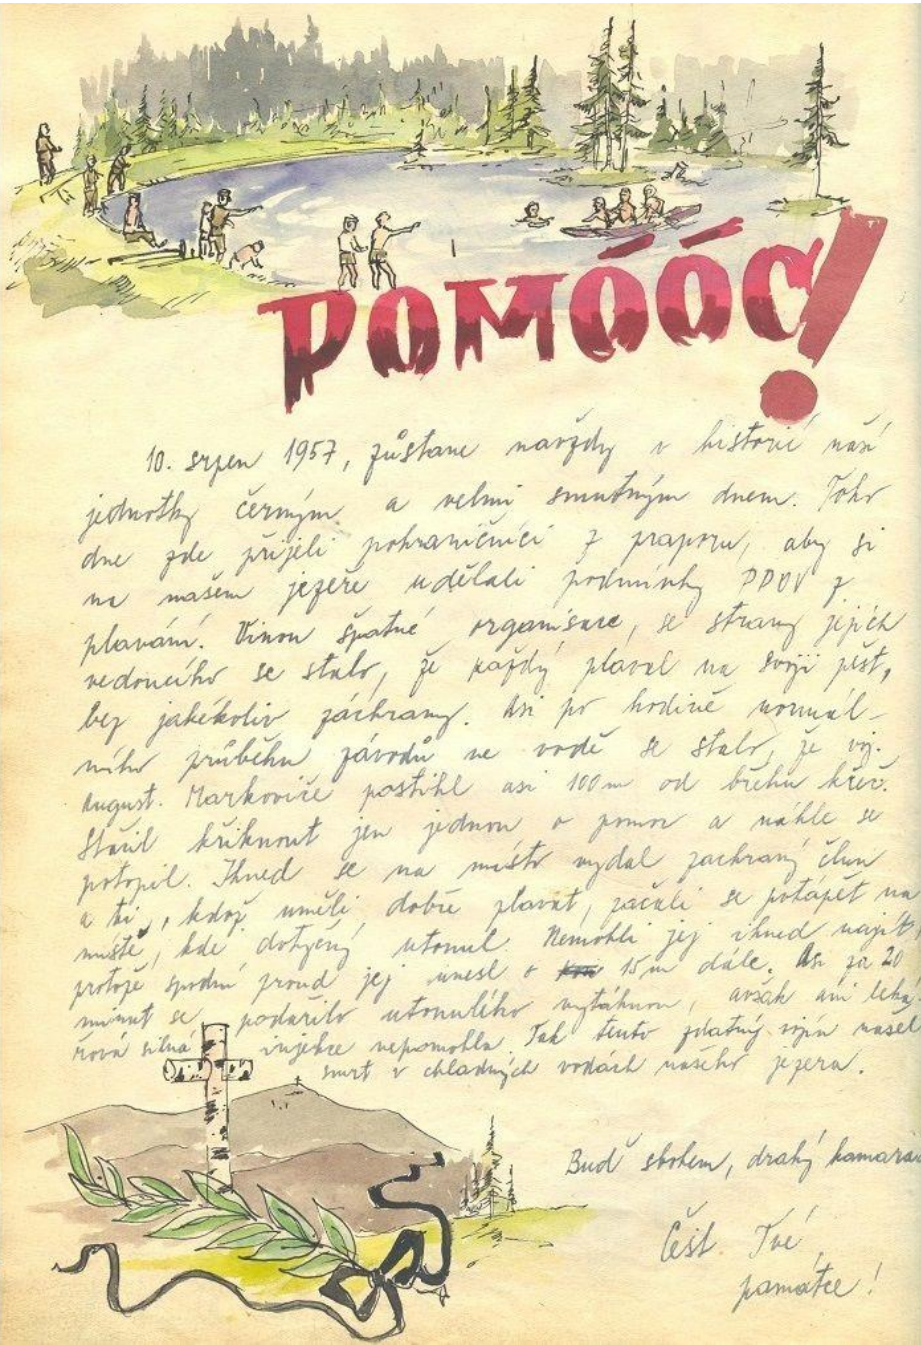 POMÓÓC!
10. srpen 1957, zůstane navždy v historii naší
jednotky černým a velmi smutným dnem. Toho
dne zde přijeli pohraničníci z praporu, aby si
na našem jezeře udělali podmínky PPOV z
plavání. Vinou špatné organisace, se strany jejich
vedoucího se stalo, že každý plaval na svoji pěst,
bez jakékoliv záchrany. Asi po hodině normál-
ního průběhu závodů na vodě se stalo, že voj.
August. Markoviče postihl asi 100 m od břehu křeč.
Stačil křiknout jen jednou o pomoc a náhle se
potopil. Ihned se na místo vydal zachraný člun
a ti, kdož uměli dobře plavat, začali se potápět na
místě, kde dotyčný utonul. Nemohli jej ihned najít,
protože spodní proud jej unesl o 15 m dále. Asi za 20
minut se podařilo utonulého vytáhnou, avšak ani leka-
řová silná injekce nepomohla. Tak tento zdatný vojín našel
smrt v chladných vodách našeho jezera.
Buď sbohem, drahý kamarád
Čest Tvé
památce!